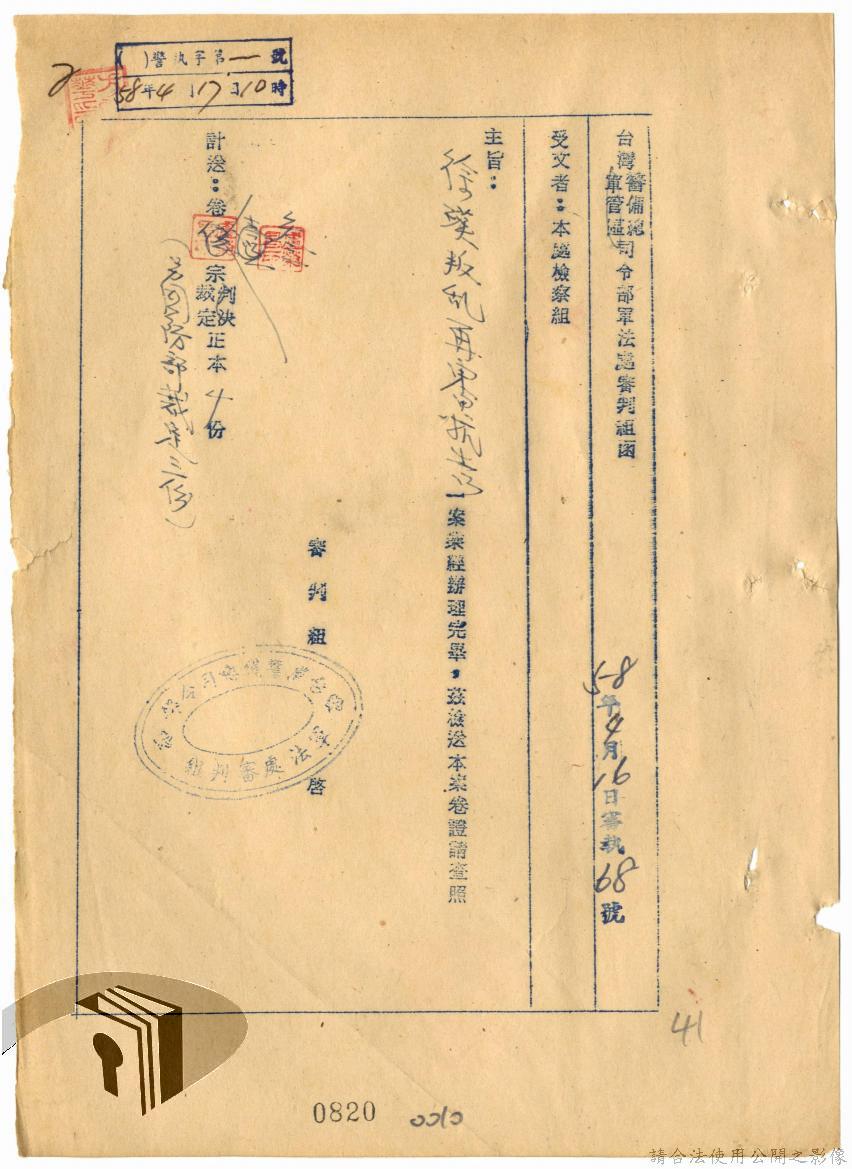 台灣警備總司令部軍法處審判組函
軍管區
58年4月16日審執68號
受文者：本處檢察組
主旨：
叛亂再審抗告
一案業經辦理完畢，茲檢送本案卷證請查照
審判組
啓
計送：卷宗
判決
裁定
正本4份
國防部裁定三份
( )警執字第一號
58年4月17日10時
法處審判組
41
0820
0010
請合法使用公開之影像